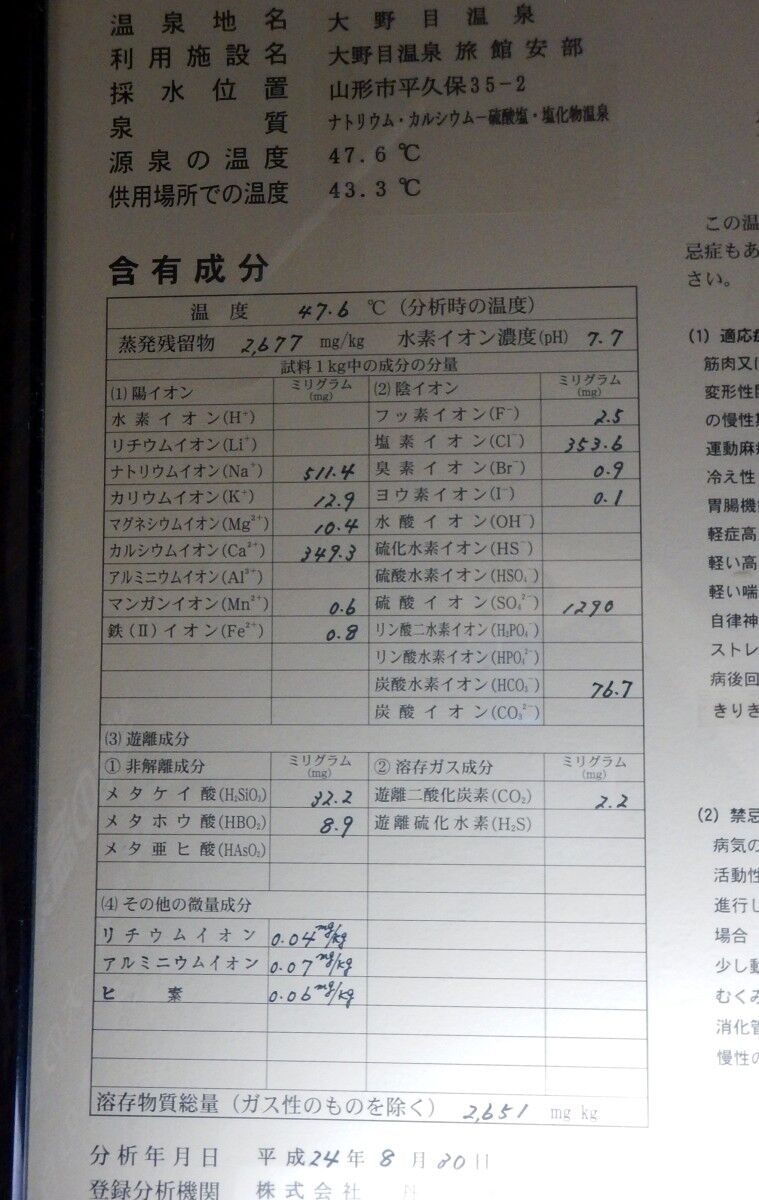 温泉地名 大野目温泉
利用施設名 大野目温泉 旅館安部
採水位置 山形市平久保35-2
泉質 ナトリウム・カルシウム－硫酸塩・塩化物温泉
源泉の温度 47.6℃
供用場所での温度 43.3℃
含有成分
温度 47.6 ℃ (分析時の温度)
蒸発残留物 2,677 mg/kg 水素イオン濃度(pH) 7.7
試料1kg中の成分の分量
(1) 陽イオン ミリグラム(mg) (2) 陰イオン ミリグラム(mg)
水素イオン(H⁺) フッ素イオン(F⁻) 2.5
リチウムイオン(Li⁺) 塩素イオン(Cl⁻) 353.6
ナトリウムイオン(Na⁺) 511.4 臭素イオン(Br⁻) 0.9
カリウムイオン(K⁺) 12.9 ヨウ素イオン(I⁻) 0.1
マグネシウムイオン(Mg²⁺) 10.4 水酸イオン(OH⁻)
カルシウムイオン(Ca²⁺) 349.3 硫化水素イオン(HS⁻)
アルミニウムイオン(Al³⁺) 硫酸水素イオン(HSO₄⁻)
マンガンイオン(Mn²⁺) 0.6 硫酸イオン(SO₄²⁻) 1290
鉄(Ⅱ)イオン(Fe²⁺) 0.8 リン酸二水素イオン(H₂PO₄⁻)
リン酸水素イオン(HPO₄²⁻)
炭酸水素イオン(HCO₃⁻) 76.7
炭酸イオン(CO₃²⁻)
(3) 遊離成分
① 非解離成分 ミリグラム(mg) ② 溶存ガス成分 ミリグラム(mg)
メタケイ酸(H₂SiO₃) 32.2 遊離二酸化炭素(CO₂) 2.2
メタホウ酸(HBO₂) 8.9 遊離硫化水素(H₂S)
メタ亜ヒ酸(HAsO₂)
(4) その他の微量成分
リチウムイオン 0.04mg/kg
アルミニウムイオン 0.07mg/kg
ヒ素 0.06mg/kg
溶存物質総量(ガス性のものを除く) 2,651 mg kg
分析年月日 平成24年8月30日
登録分析機関 株式会社
この温
忌症もあ
さい。
(1) 適応症
筋肉又は
変形性関
の慢性期
運動麻痺
冷え性
胃腸機能
軽症高
軽い高
軽い喘
自律神
ストレ
病後回
きりき
(2) 禁忌
病気の
活動性
進行し
場合
少し動
むくみ
消化管
慢性の